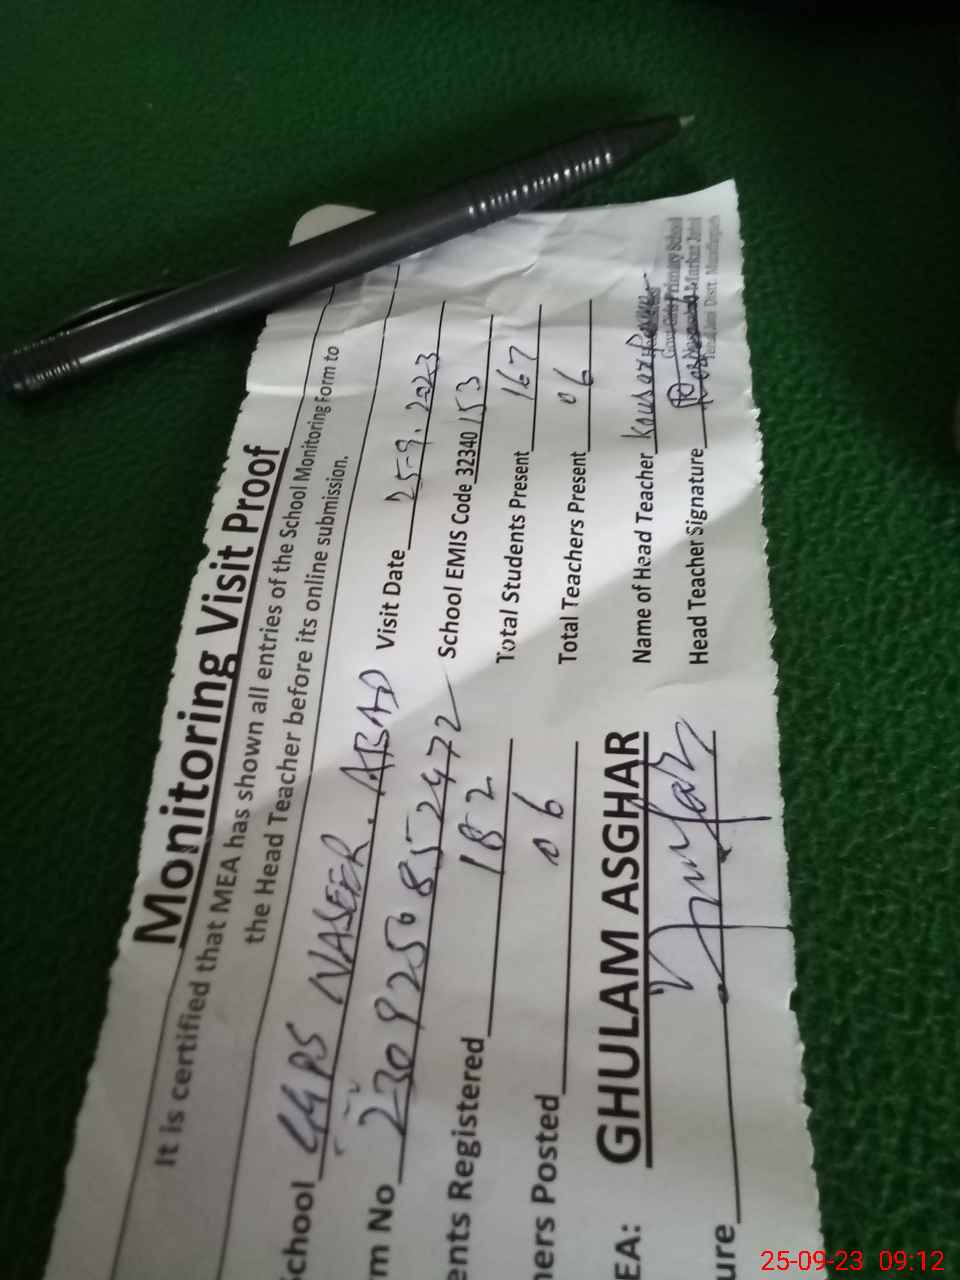 Monitoring Visit Proof
It is certified that MEA has shown all entries of the School Monitoring Form to
the Head Teacher before its online submission.
chool GGPS NASEER. ABAD Visit Date 25-9. 2023
rm No School EMIS Code 32340 153
ents Registered 182 Total Students Present 167
hers Posted 06 Total Teachers Present 06
EA: GHULAM ASGHAR Name of Head Teacher Kousar
ure Head Teacher Signature
Primary School
Markaz
Distt.
25-09-23 09:12